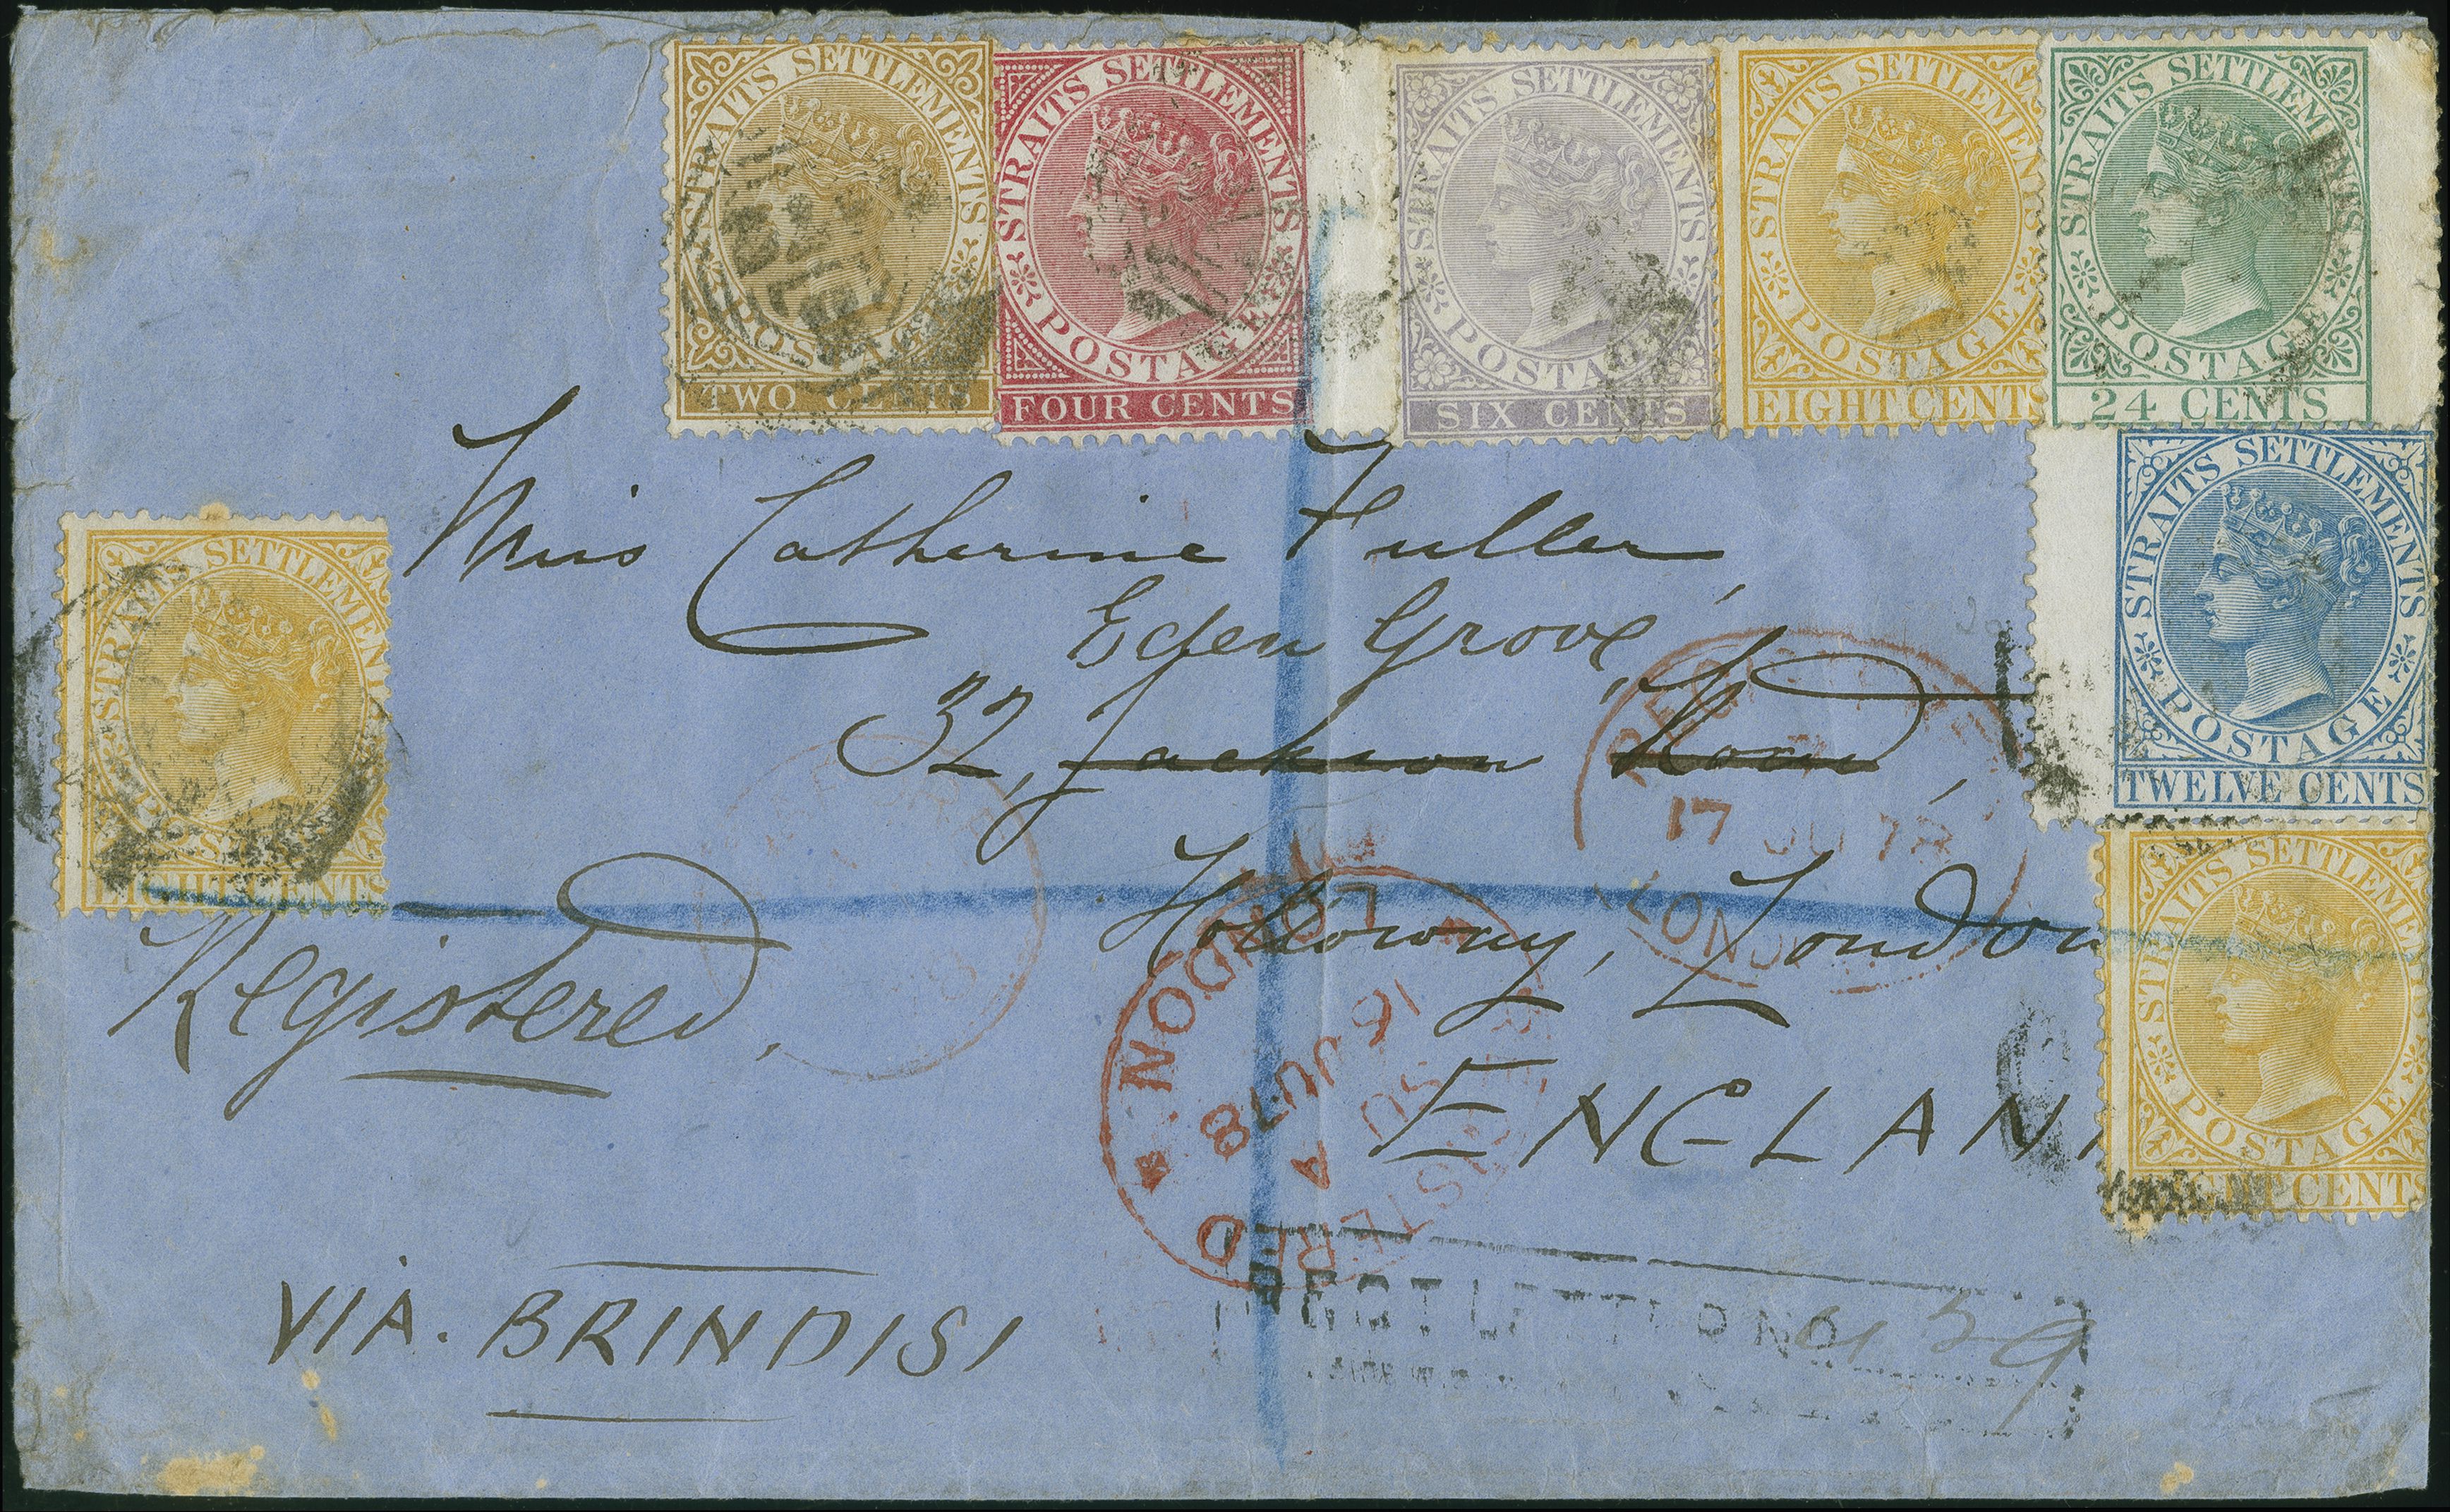 STRAITS SETTLEMENTS
POSTAGE
TWO CENTS
STRAITS SETTLEMENTS
POSTAGE
FOUR CENTS
STRAITS SETTLEMENTS
POSTAGE
SIX CENTS
STRAITS SETTLEMENTS
POSTAGE
EIGHT CENTS
STRAITS SETTLEMENTS
POSTAGE
24 CENTS
STRAITS SETTLEMENTS
POSTAGE
TWELVE CENTS
STRAITS SETTLEMENTS
POSTAGE
EIGHT CENTS
STRAITS SETTLEMENTS
POSTAGE
EIGHT CENTS
Miss Catherine Fuller,
Eden Grove,
32, Jackson Road,
Holloway, London
ENGLAN
Registered,
VIA. BRINDISI
REGISTERED
17 JU 78
LONDON
LONDON
16 JU 78
A
REGISTERED